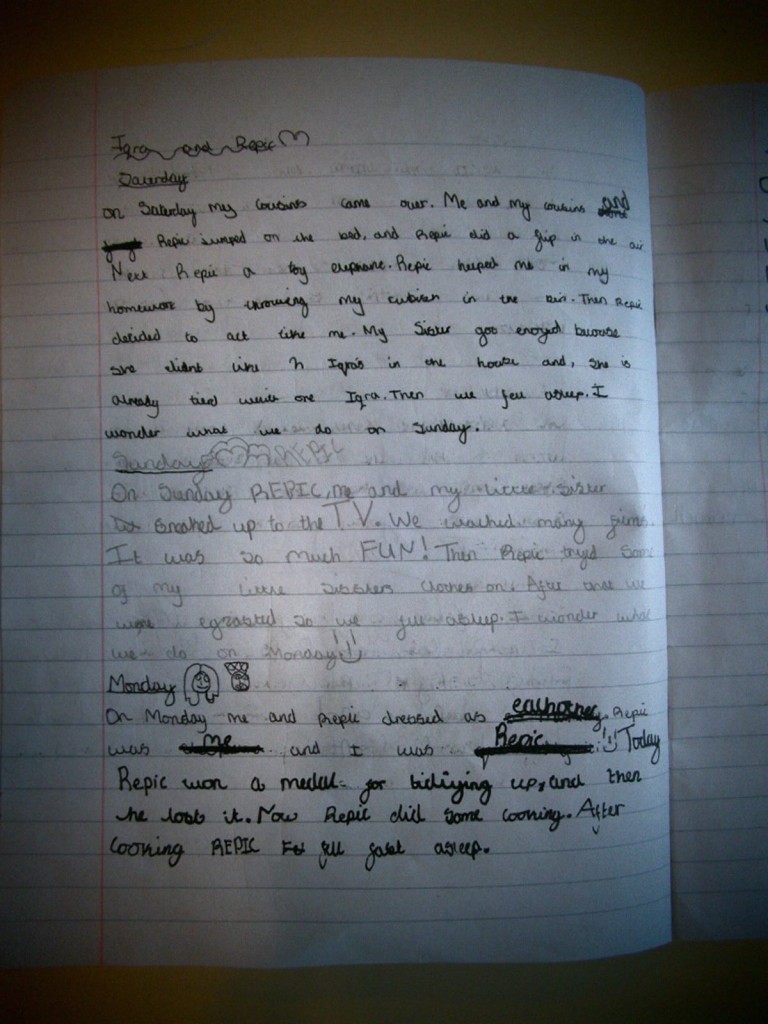 Iqra and Repic
Saturday
On Saterday my cousins came over. Me and my cousins and
Repic jumped on the bed, and Repic did a flip in the air
Next Repic a toy elephant. Repic helped me in my
homework by throwing my in the bin. Then Repic
decided to act like me. My Sister got enoyed because
she didnt like 2 Iqra's in the house and, she is
already tierd with one Iqra. Then we fell asleep. I
wonder what we do on Sunday.
Sunday REPIC
On Sunday REPIC, me and my little sister
sneaked up to the TV. We wached many films.
It was so much FUN! Then Repic tryed some
of my little sisters clothes on. After that we
were so we fell asleep. I wonder what
we do on Monday!
Monday
On Monday me and Repic dressed as eachother. Repic
was me and I was Repic Today
Repic won a medal for tidiying up, and then
he lost it. Now Repic did some cooking. After
cooking REPIC fell fast asleep.